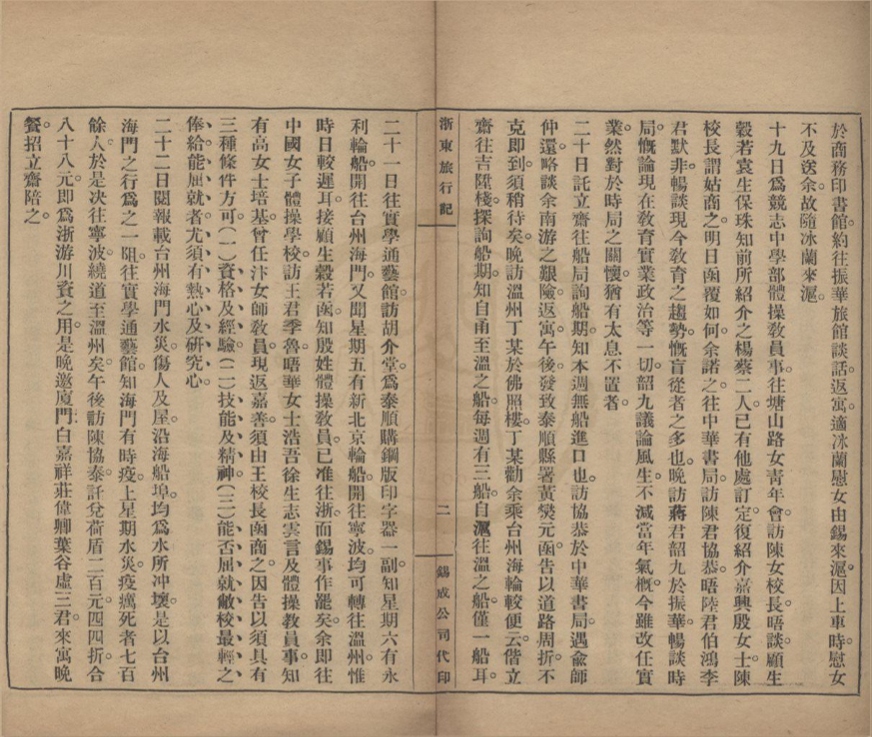 於商務印書館。約往振華旅館談話。返寓。適冰蘭慰女由錫來滬。因上車時慰女
不及送余。故隨冰蘭來滬。
十九日爲競志中學部體操教員事。往塘山路女青年會。訪陳女校長。晤談。顧生
穀若袁生保珠知前所紹介之楊蔡二人。已有他處訂定。復紹介嘉興殷女士。陳
校長謂姑商之。明日函覆如何。余諾之。往中華書局。訪陳君協恭。晤陸君伯鴻李
君默非。暢談現今敎育之趨勢。慨盲從者之多也。晚訪蔣君韶九於振華。暢談時
局。慨論現在敎育實業政治等一切。韶九議論風生。不減當年氣概。今雖改任實
業。然對於時局之關懷。猶有太息不置者。
二十日託立齋往船局詢船期。知本週無船進口也。訪協恭於中華書局。遇俞師
仲還。略談余南游之艱險。返寓。午後發致泰順縣署黃奬元函。告以道路周折。不
克即到。須稍待矣。晚訪溫州丁某於佛照樓。丁某勸余乘台州海輪較便云。偕立
齋往吉陞棧。探詢船期。知自甬至溫之船。每週有三船。自滬往溫之船。僅一船耳。
浙東旅行記
二
錫成公司代印
二十一日往實學通藝館。訪胡介堂。爲泰順購鋼版印字器一副。知星期六有永
利輪船。開往台州海門。又聞星期五有新北京輪船。開往寧波。均可轉往溫州。惟
時日較遲耳。接顧生穀若函。知殷姓體操敎員。已准往浙。而錫事作罷矣。余即往
中國女子體操學校。訪王君季魯。晤華女士浩吾徐生志雲。言及體操敎員事。知
有高女士培基。曾任汴女師敎員。現返嘉善。須由王校長函商之。因告以須具有
三種條件方可。(一)資格及經驗(二)技能及精神(三)能否屈就敝校最輕之
俸給。能屈就者。尤須有熱心及研究心。
二十二日閱報載台州海門水災。傷人及屋。沿海船埠。均爲水所冲壞。是以台州
海門之行爲之一阻。往實學通藝館。知海門有時疫。上星期水災。疫癘死者七百
餘人。於是决往寧波。繞道至溫州矣。午後訪陳協泰。託兌荷盾二百元。四四折合
八十八元。即爲浙游川資之用。是晚邀廈門白嘉祥莊偉卿葉谷虛三君。來寓晚
餐。招立齋陪之。